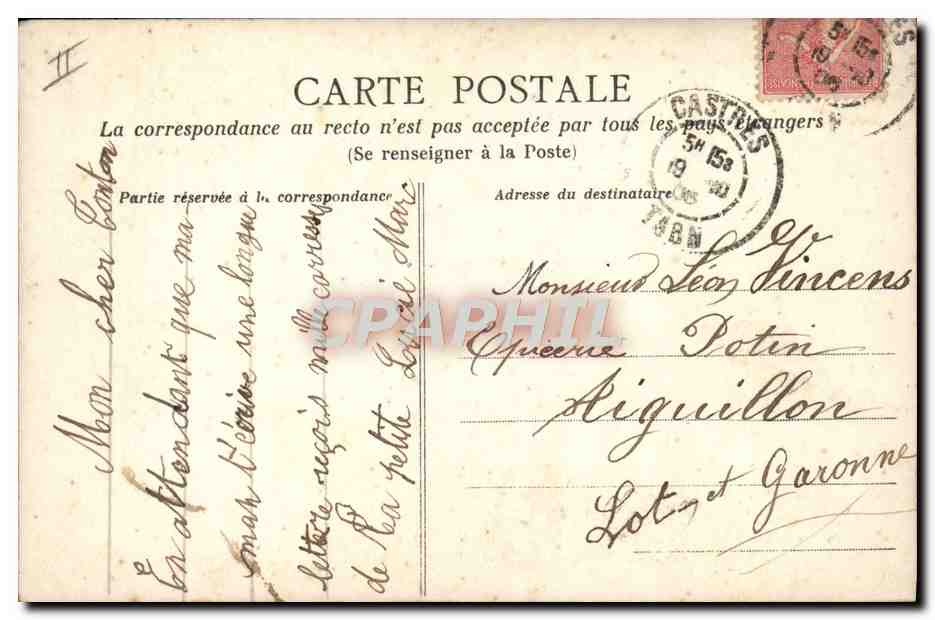 II
CARTE POSTALE
La correspondance au recto n'est pas acceptée par tous les pays étrangers
(Se renseigner à la Poste)
Partie réservée à la correspondance
Adresse du destinataire
CASTRES
5H 15S
19
TARN
Monsieur Léon Vincens
Epicerie Potin
Aiguillon
Lot et Garonne
Mon cher Tonton
En attendant que ma-
man t'écrive une longue
lettre reçois mille caresses
de la petite Lucie Marc
CPAPHIL